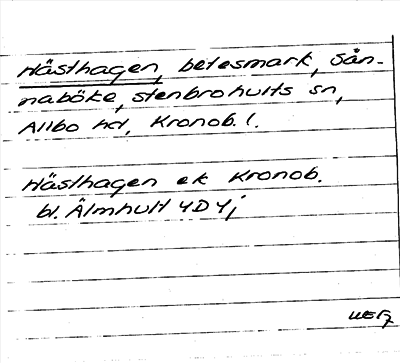 Hästhagen, betesmark, Sån-
naböke, Stenbrohults sn,
Allbo hd, Kronob. l.
Hästhagen ek Kronob.
bl. Älmhult 4D4j